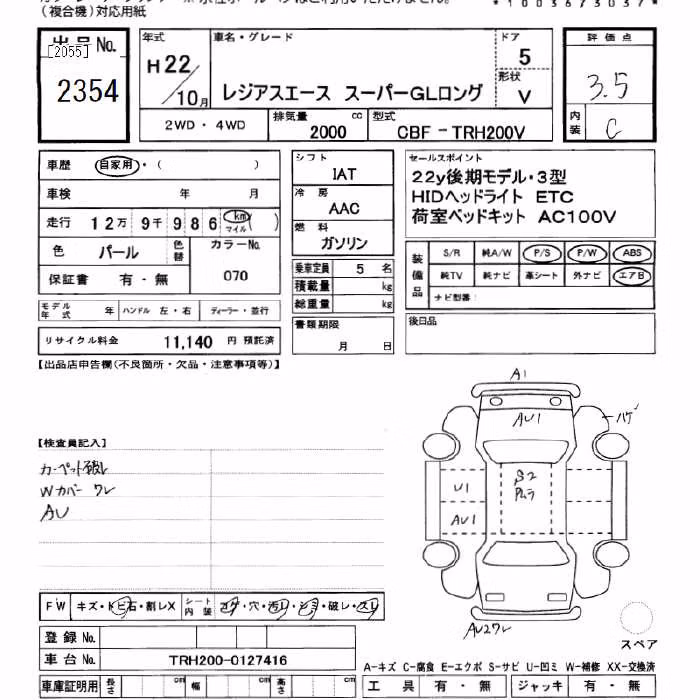 (複合機)対応用紙
*1003673037*
出品No.
[2055]
2354
年式
H22/10月
車名・グレード
レジアスエース スーパーGLロング
ドア
5
形状
V
評価点
3.5
内装
C
2WD・4WD
排気量
2000
cc
型式
CBF-TRH200V
車歴
自家用・( )
車検
年 月
走行
12万9千986
km
マイル
( )
色
パール
色替
カラーNo.
070
保証書
有・無
モデル年式
年
ハンドル 左・右
ディーラー・並行
リサイクル料金
11,140 円 預託済
シフト
IAT
冷房
AAC
燃料
ガソリン
乗車定員 5 名
積載量 kg
総重量 kg
書類期限
月 日
セールスポイント
22y後期モデル・3型
HIDヘッドライト ETC
荷室ベッドキット AC100V
装備品
S/R 純A/W P/S P/W ABS
純TV 純ナビ 革シート 外ナビ エアB
ナビ型番:
後日品
【出品店申告欄(不良箇所・欠品・注意事項等)】
【検査員記入】
カーペット破レ
Wカバー ワレ
AU
A1
AU1
ハゲ
U1
AU1
S2
AUワレ
スペア
FW
キズ・トビ石・割レX
シート内装
コゲ・穴・汚レ・シミ・破レ・スレ
登録No.
車台No.
TRH200-0127416
車庫証明用
長さ cm
幅 cm
高さ cm
A-キズ C-腐食 E-エクボ S-サビ U-凹ミ W-補修 XX-交換済
工具 有・無
ジャッキ 有・無